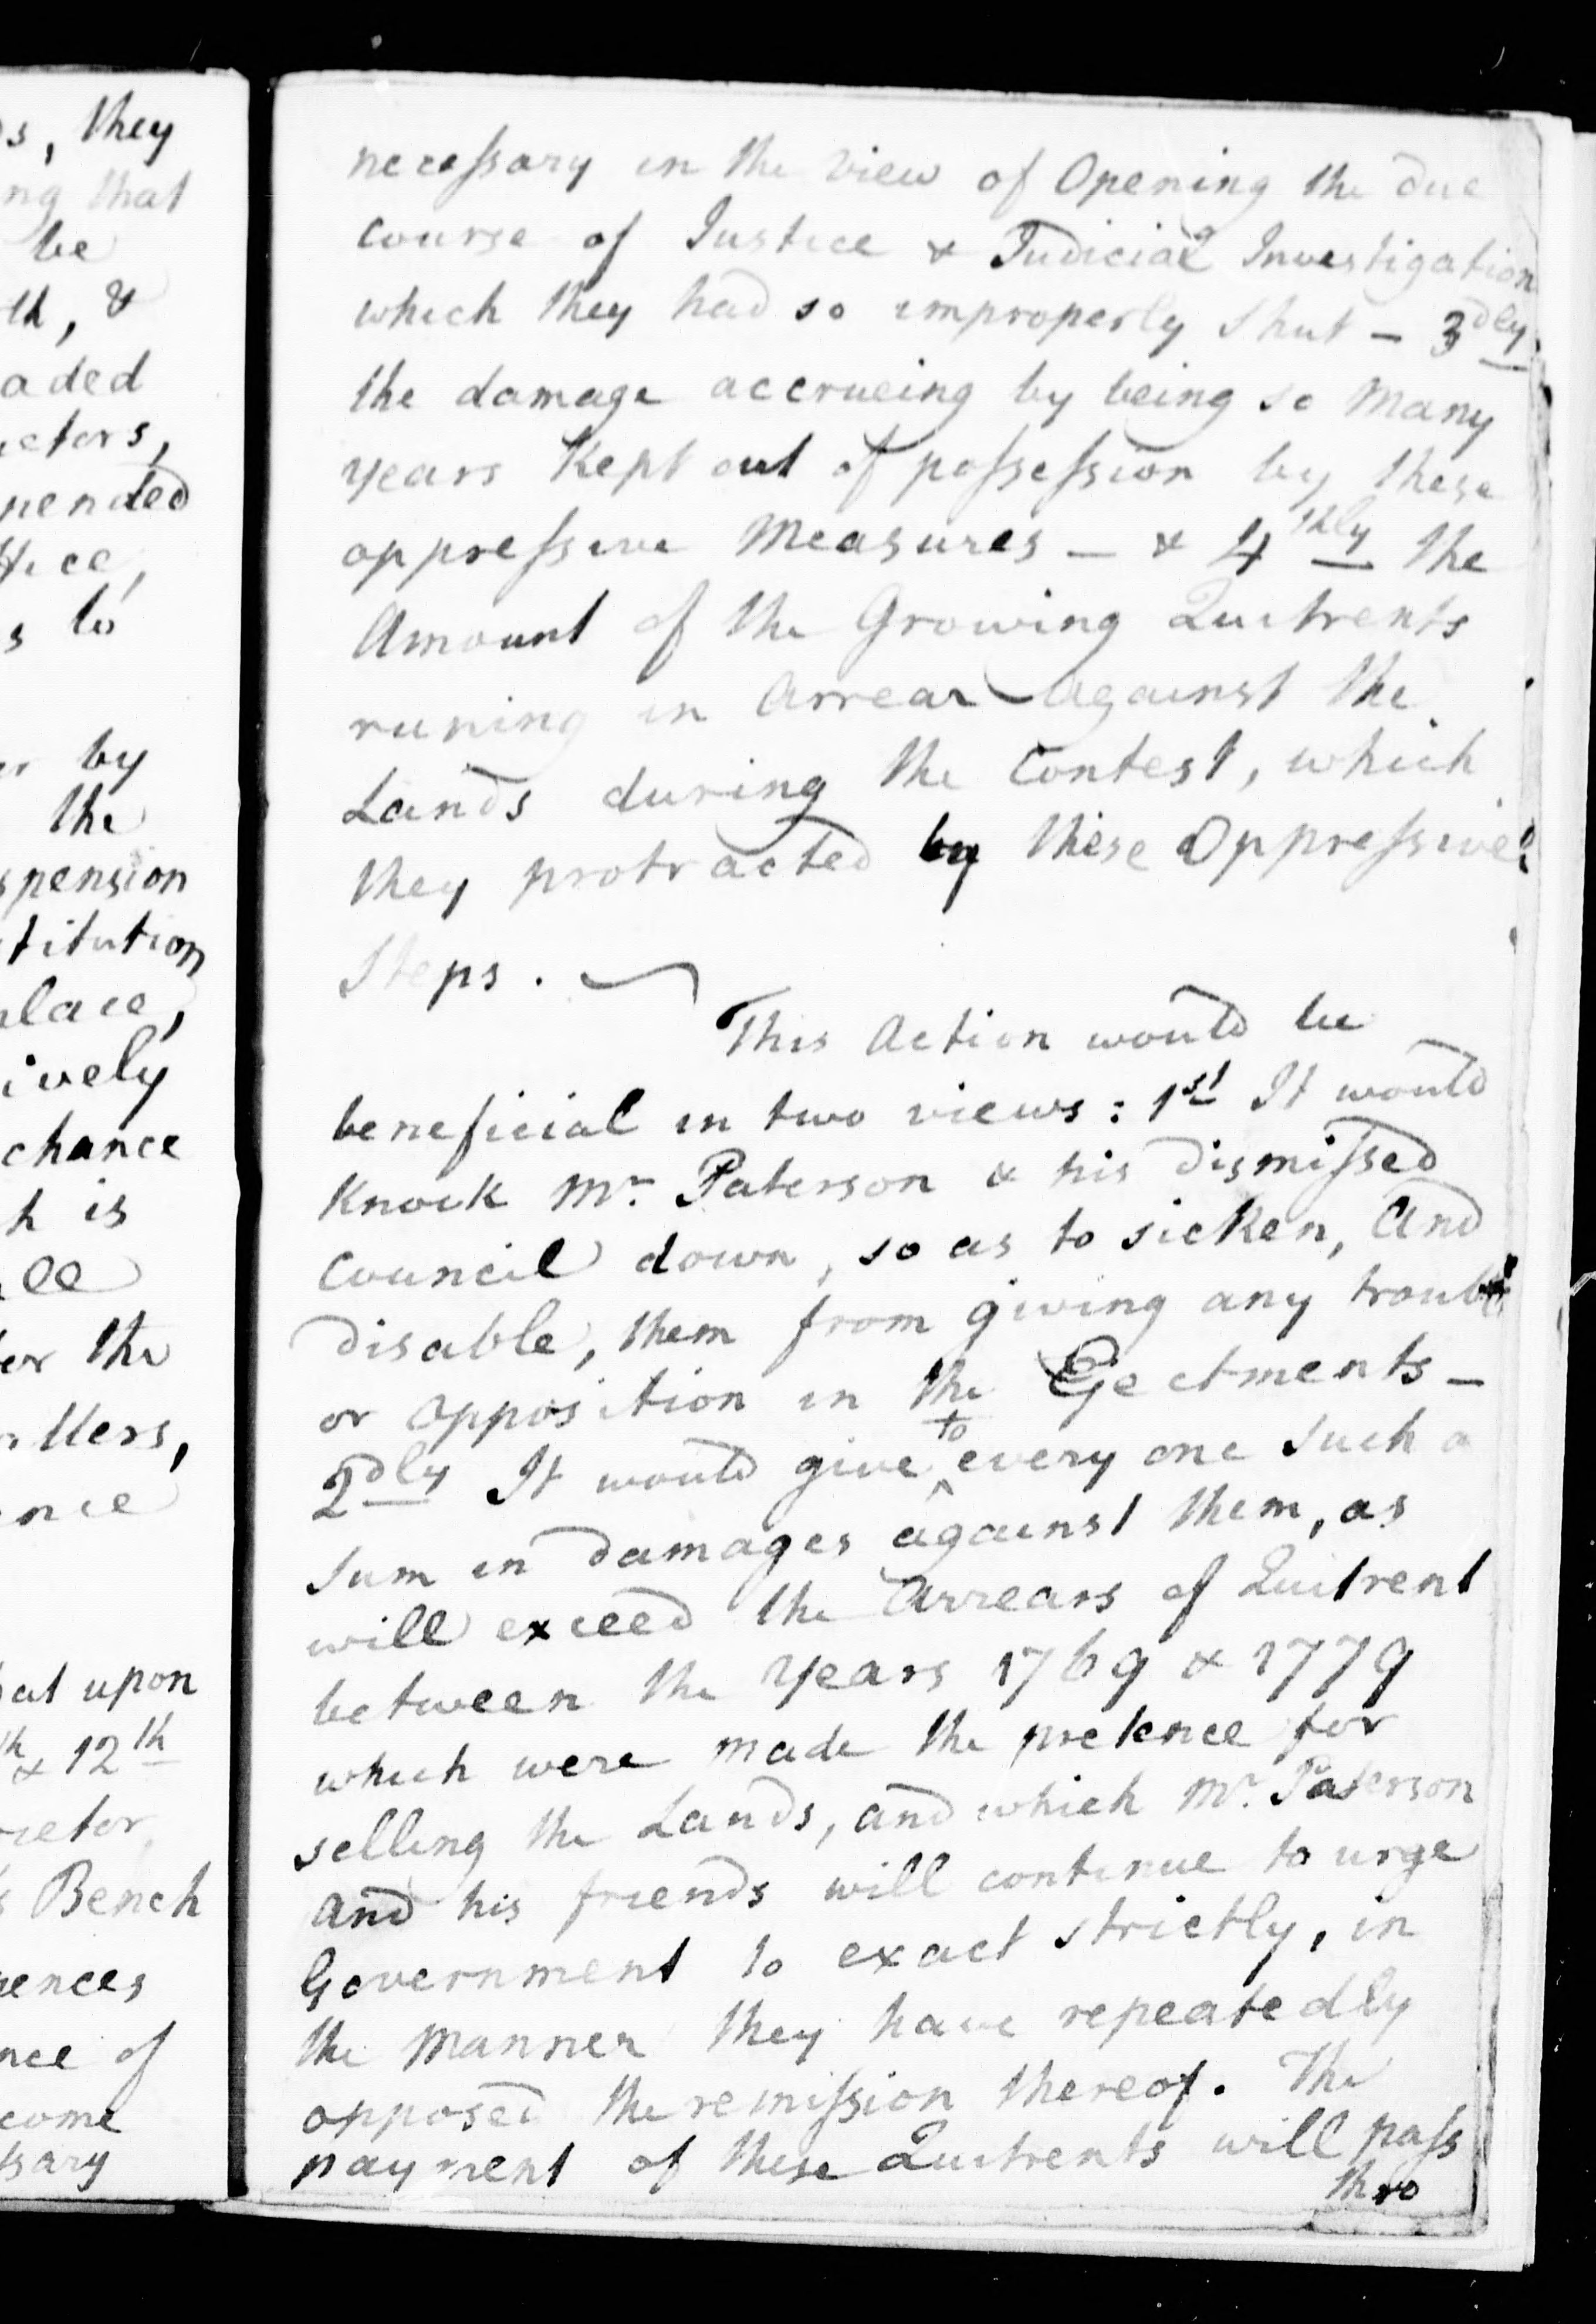 s, they
ng that
be
th, &
aded
ctors,
pended
ffice,
s to
er by
the
spension
titution
place,
ively
chance
h is
ll
for the
tters,
ence
hat upon
th & 12th
rietor
s Bench
uences
nce of
come
ssary
necessary in the View of Opening the due
Course of Justice & Judicial Investigation
which they had so improperly Shut – 3dly.
the damage accrueing by being so Many
years Kept out of possession by these
oppressive Measures – & 4thly the
Amount of the Growing Quitrents
runing in Arrear Against the
Lands during the Contest, which
they protracted by these Oppressive
Steps.
This Action would be
beneficial in two views: 1st It would
Knock Mr. Paterson & his dismissed
Council down, so as to sicken, And
disable, them from giving any trouble
or opposition in the Ejectments –
2dly It would give to every one Such a
Sum in damages against them, as
will exceed the Arrears of Quitrent
between the Years 1769 & 1779
which were made the pretence for
selling the Lands, and which Mr. Paterson
And his friends will continue to urge
Government to exact strictly, in
the Manner they have repeatedly
opposed the remission thereof. The
payment of these Quitrents will pass
thro